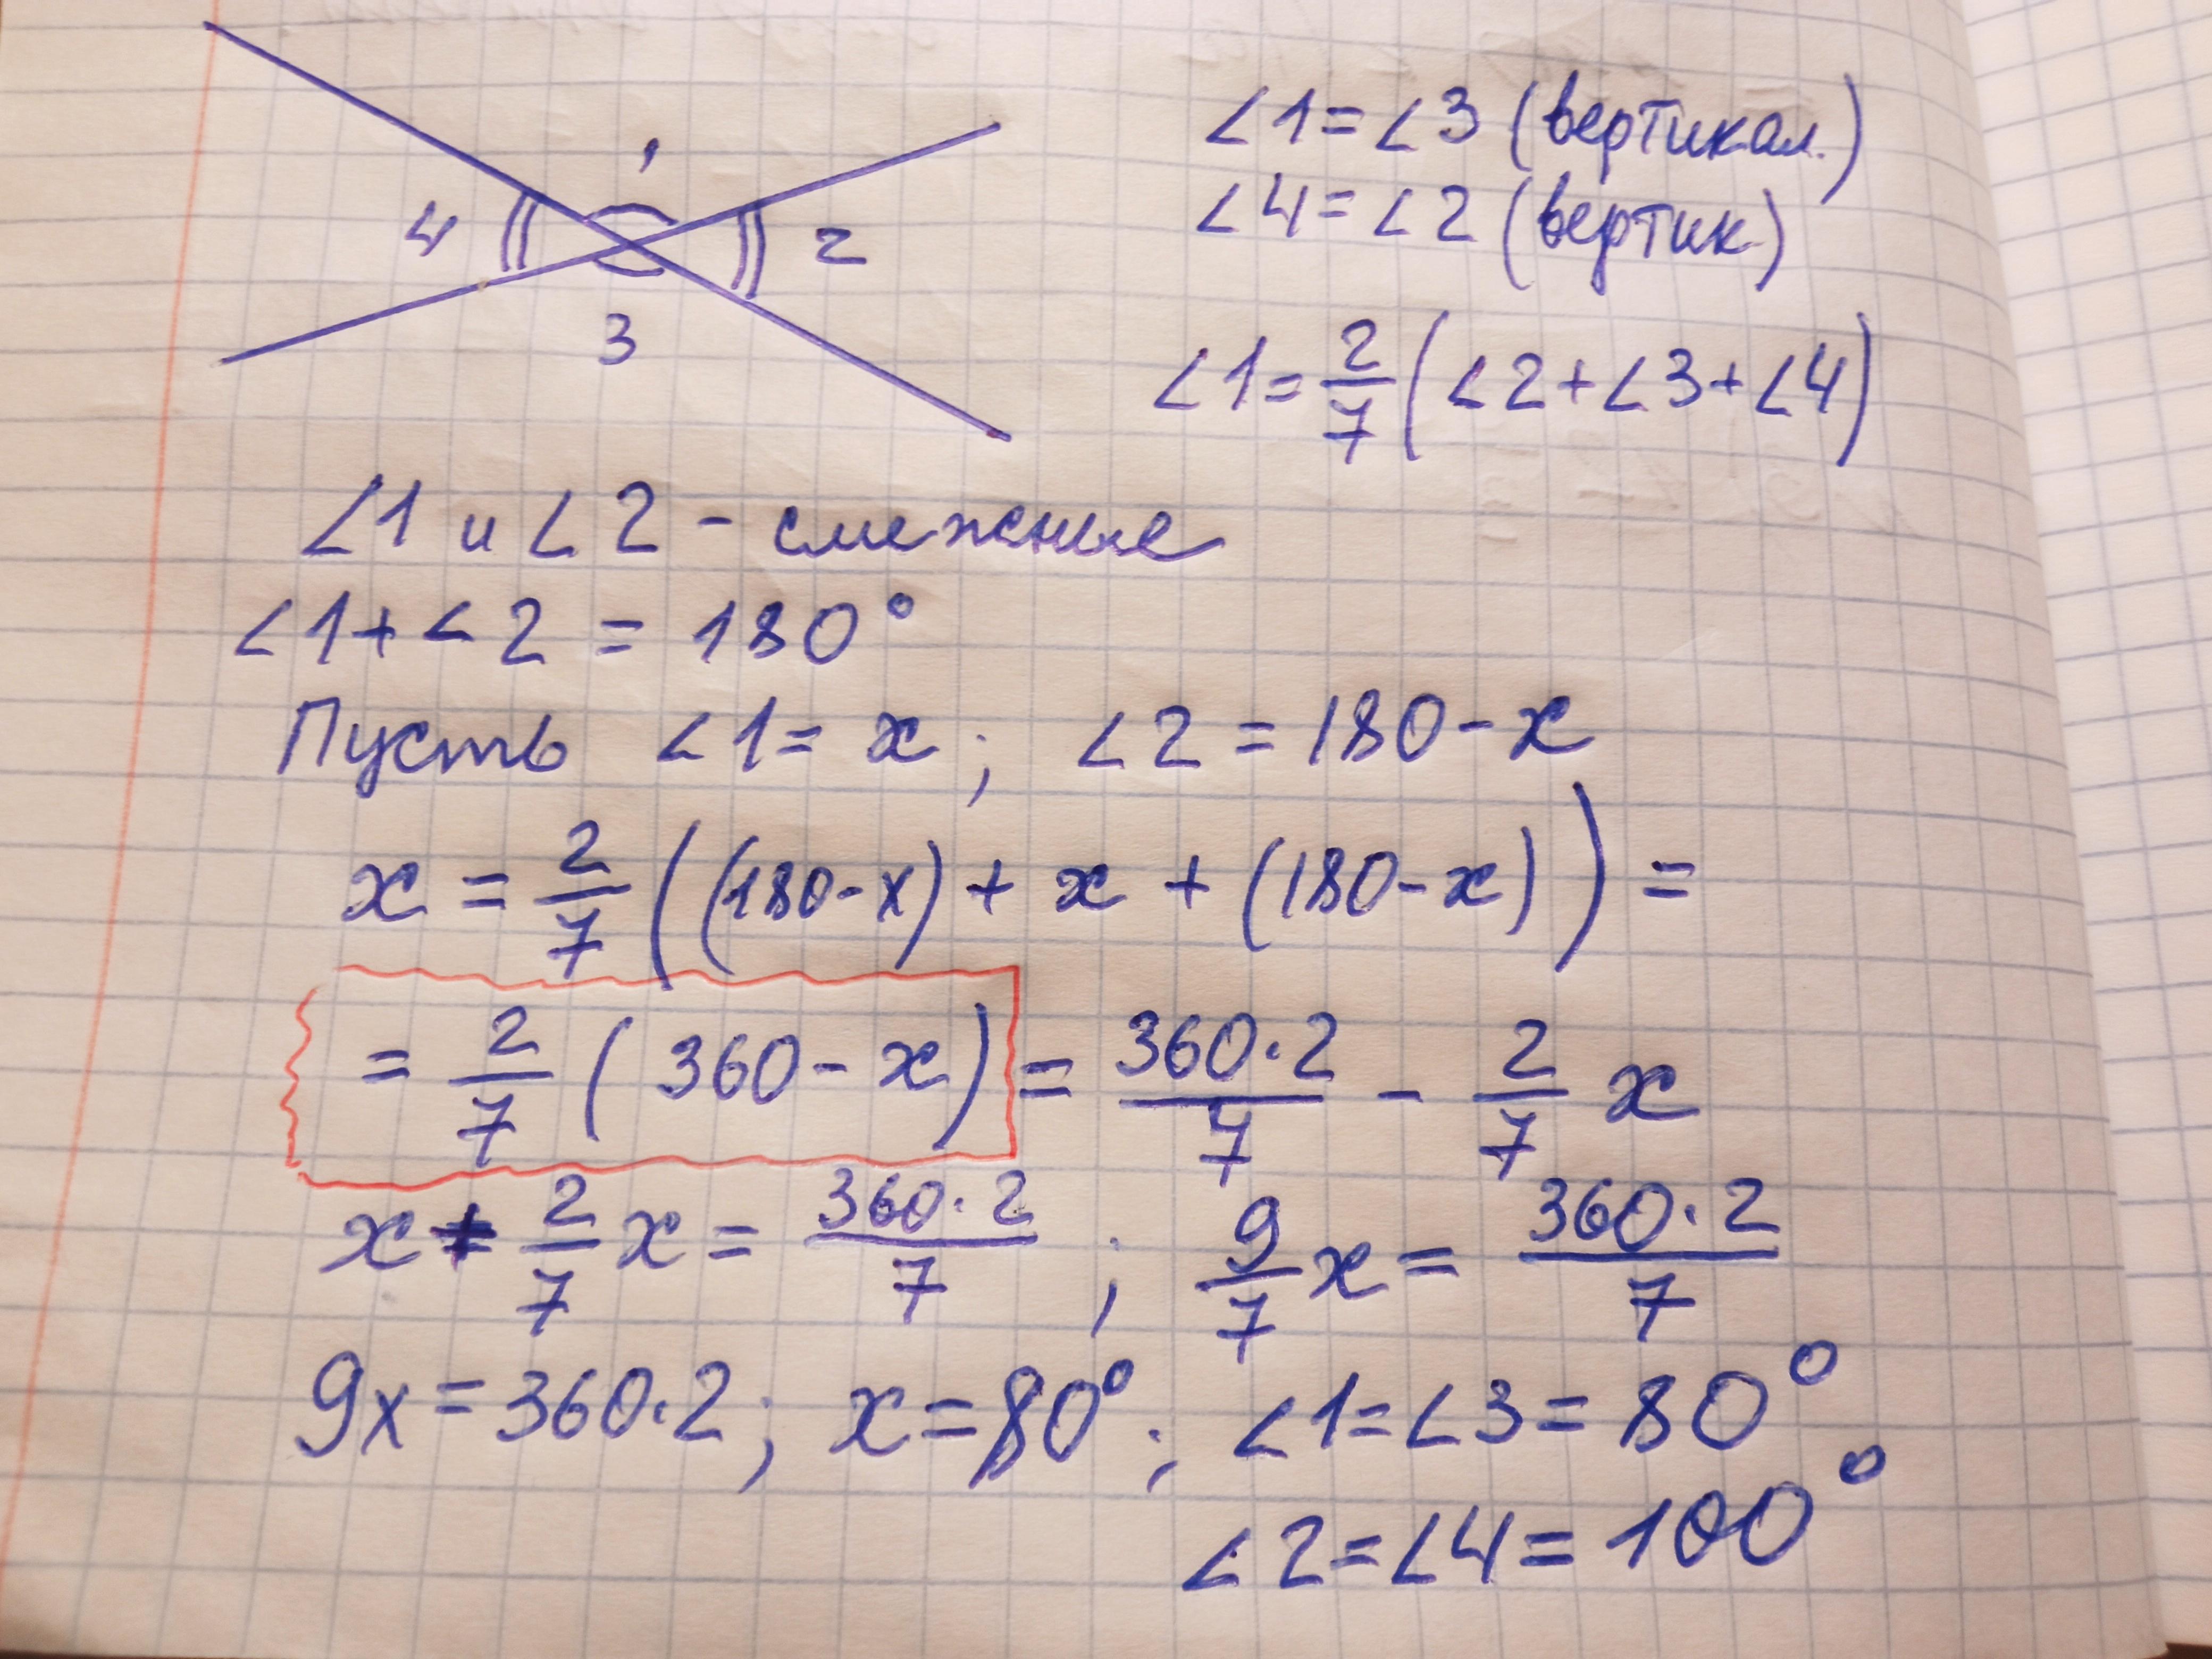 1
4
2
3
∠1=∠3 (вертикал.)
∠4=∠2 (вертик.)
∠1=2/7(∠2+∠3+∠4)
∠1 и ∠2 - смежные
∠1+∠2 = 180°
Пусть ∠1= x; ∠2 = 180-x
x = 2/7((180-x)+ x +(180-x)) =
= 2/7( 360-x) = 360·2/7 - 2/7 x
x + 2/7 x = 360·2/7 ; 9/7 x = 360·2/7
9x=360·2; x=80°; ∠1=∠3=80°
∠2=∠4=100°